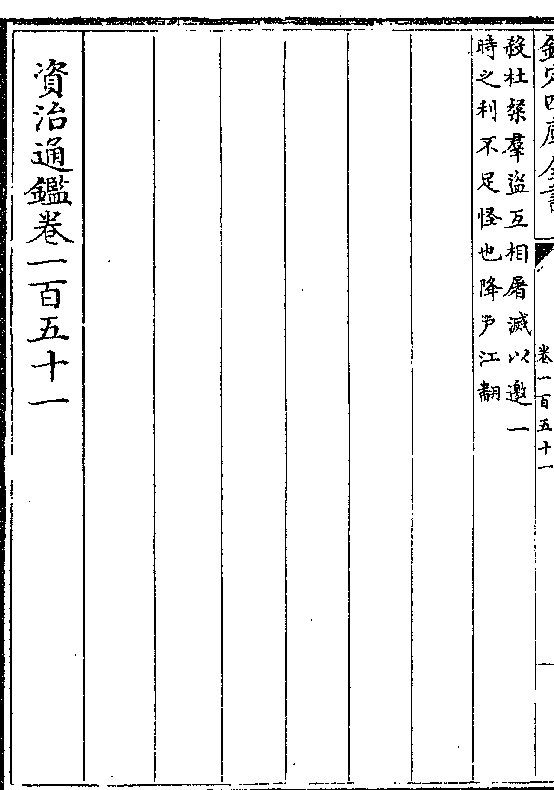 欽定四庫全書
卷一百五十一
殺杜粲羣盜互相屠滅以邀一
時之利不足怪也降戶江翻
資治通鑑卷一百五十一